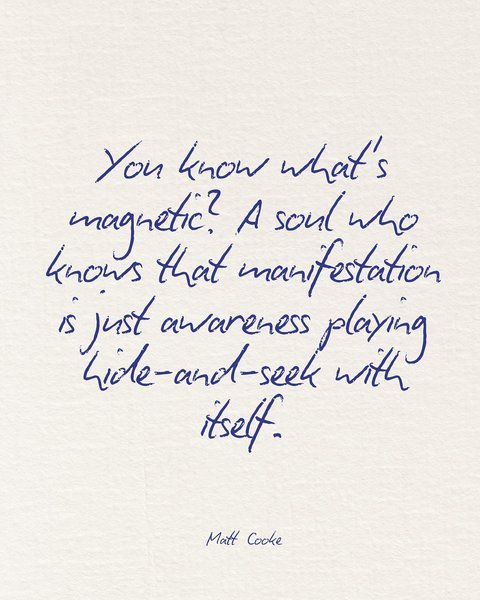 You know what's
magnetic? A soul who
knows that manifestation
is just awareness playing
hide-and-seek with
itself.
Matt Cooke